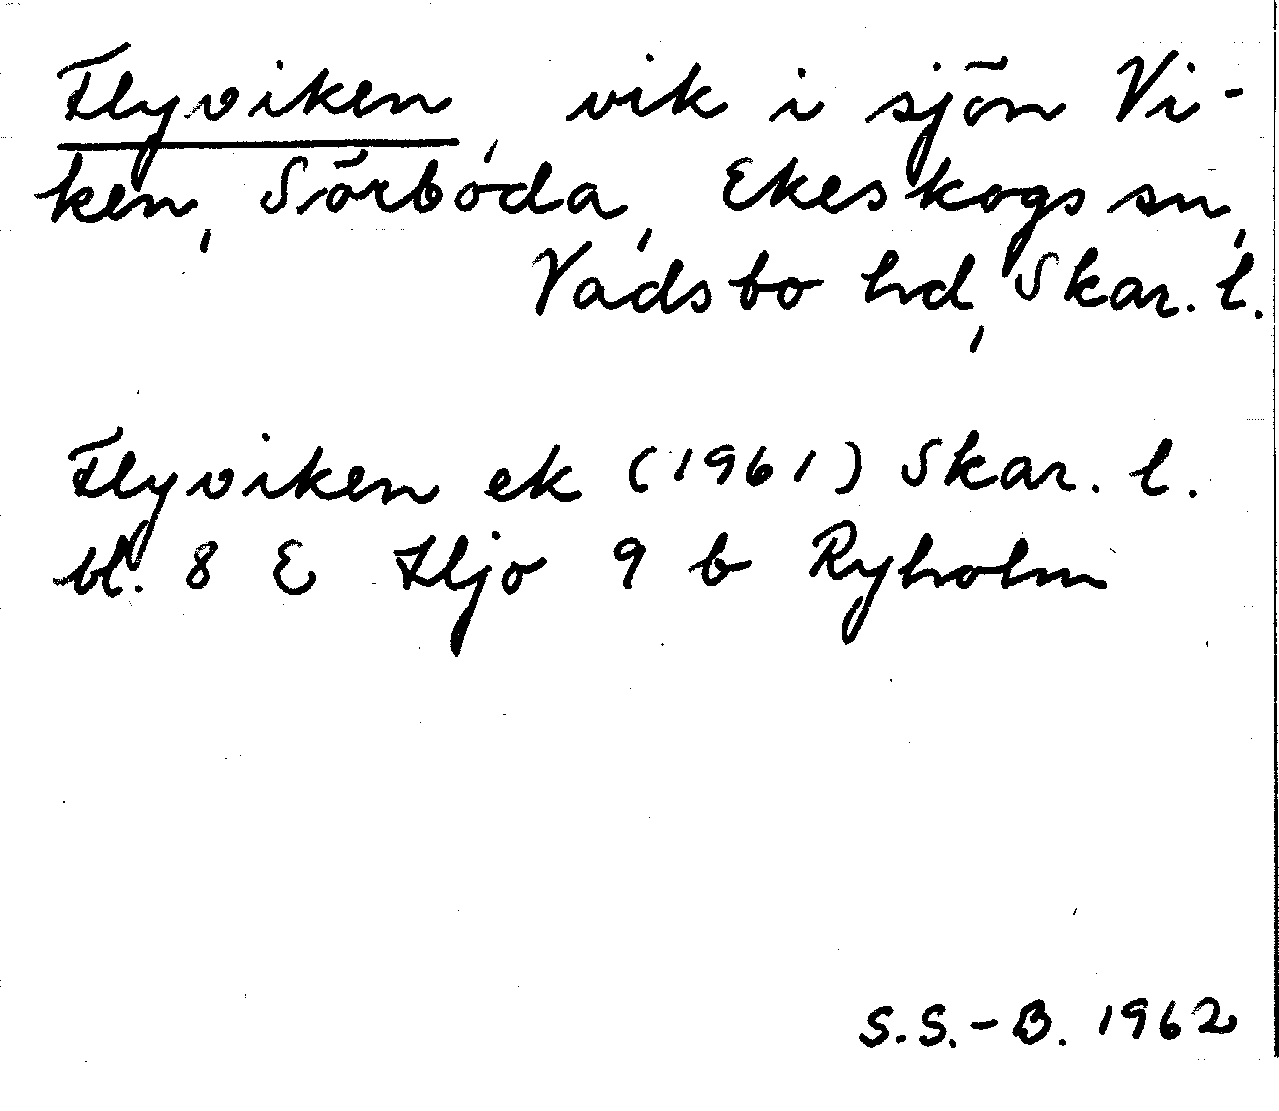 Flyviken, vik i sjön Vi-
ken, Sörböda, Ekeskogs sn,
Vadsbo hd, Skar. l.
Flyviken ek (1961) Skar. l.
bl. 8 E Hjo 9 b Ryholm
S.S.-B. 1962